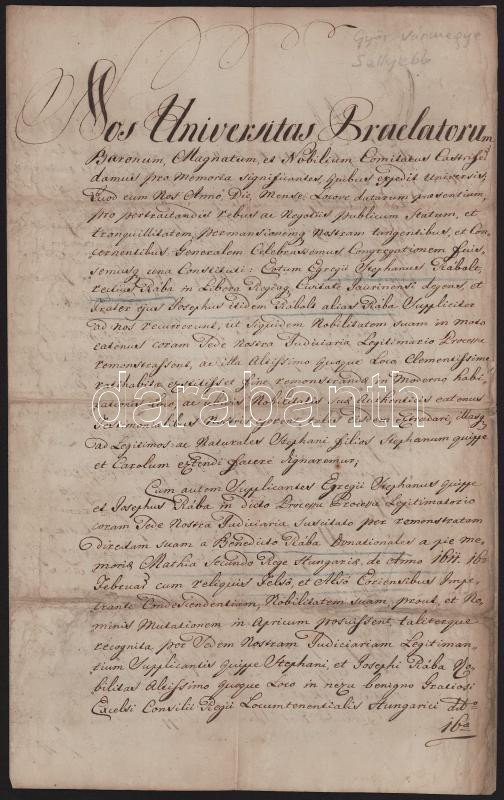 Győr vármegye
Nos Universitas Praelatorum
Baronum, Magnatum, et Nobilium Comitatus Castrife
damus pro Memoria Significantes, quibus expedit Universis,
quod cum Nos Anno, Die, Mense, Locove datarum praesentium,
pro pertractandis rebus ac Negotiis publicum Statum, et
tranquillitatem, permansionemq Nostram tangentibus, et con,
cernentibus Generalem Celebrassemus Congregationem fuis,
semusq una Constituti: Eotum Egregii Stephanus Rabalt,
rectius Rába in Libera Regiaq Civitate Jaurinensi degens, et
Frater ejus Josephus itidem Rabalt alias Rába Suppliciter
ad nos recurrerunt, ut siquidem Nobilitatem suam in moto
eatenus coram Sede Nostra Judiciaria Legitimatorio Processu
remonstrassent, ac illa Altissimo quoque Loco Clementissime
ratihabita
ad Legitimos ac Naturales Stephani filios Stephanum quippe
et Carolum extendi facere dignaremur;
Cum autem Supplicantes Egregii Stephanus quippe
et Josephus Rába in dicto Processu Legitimatorio
coram Sede Nostra Judiciaria Suscitato per remonstratam
directam suam a Benedicto Rába Donationales a pie me,
moriae Mathia Secundo Rege Hungariae, de Anno 1611. 16a
Februar cum reliquis Felső, et Alsó
trante Condescendentiam, Nobilitatem suam, prout, et No,
minis Mutationem in Apricum posuissent, taliterque
recognita per Sedem Nostram Judiciariam Legitiman,
tium Supplicantis quippe Stephani, et Josephi Rába No,
bilitas Altissimo quoque Loco in nexu benigno Gratiosi
Excelsi Consilii Regii Locumtenentialis Hungarici ddto
16a
darabanth